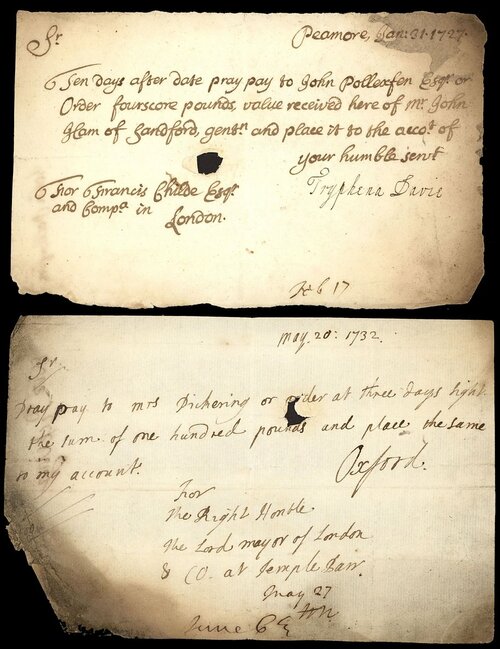 Peamore, Jan: 31. 1727.
Sr
Ten days after date pray pay to John Pollexfen Esqr or
Order fourscore pounds, value received here of mr John
Glam of Sandford, gentn and place it to the accot of
your humble servt
Tryphena Davie
For Francis Childe Esqr
and Compa in
London.
Feb 17
may 20: 1732.
Sr
Pray pay to mrs Pickering or order at three days sight
the sum of one hundred pounds and place the same
to my account.
Oxford.
For
the Right Honble
the Lord mayor of London
& CO. at Temple Barr.
May 27
June 6